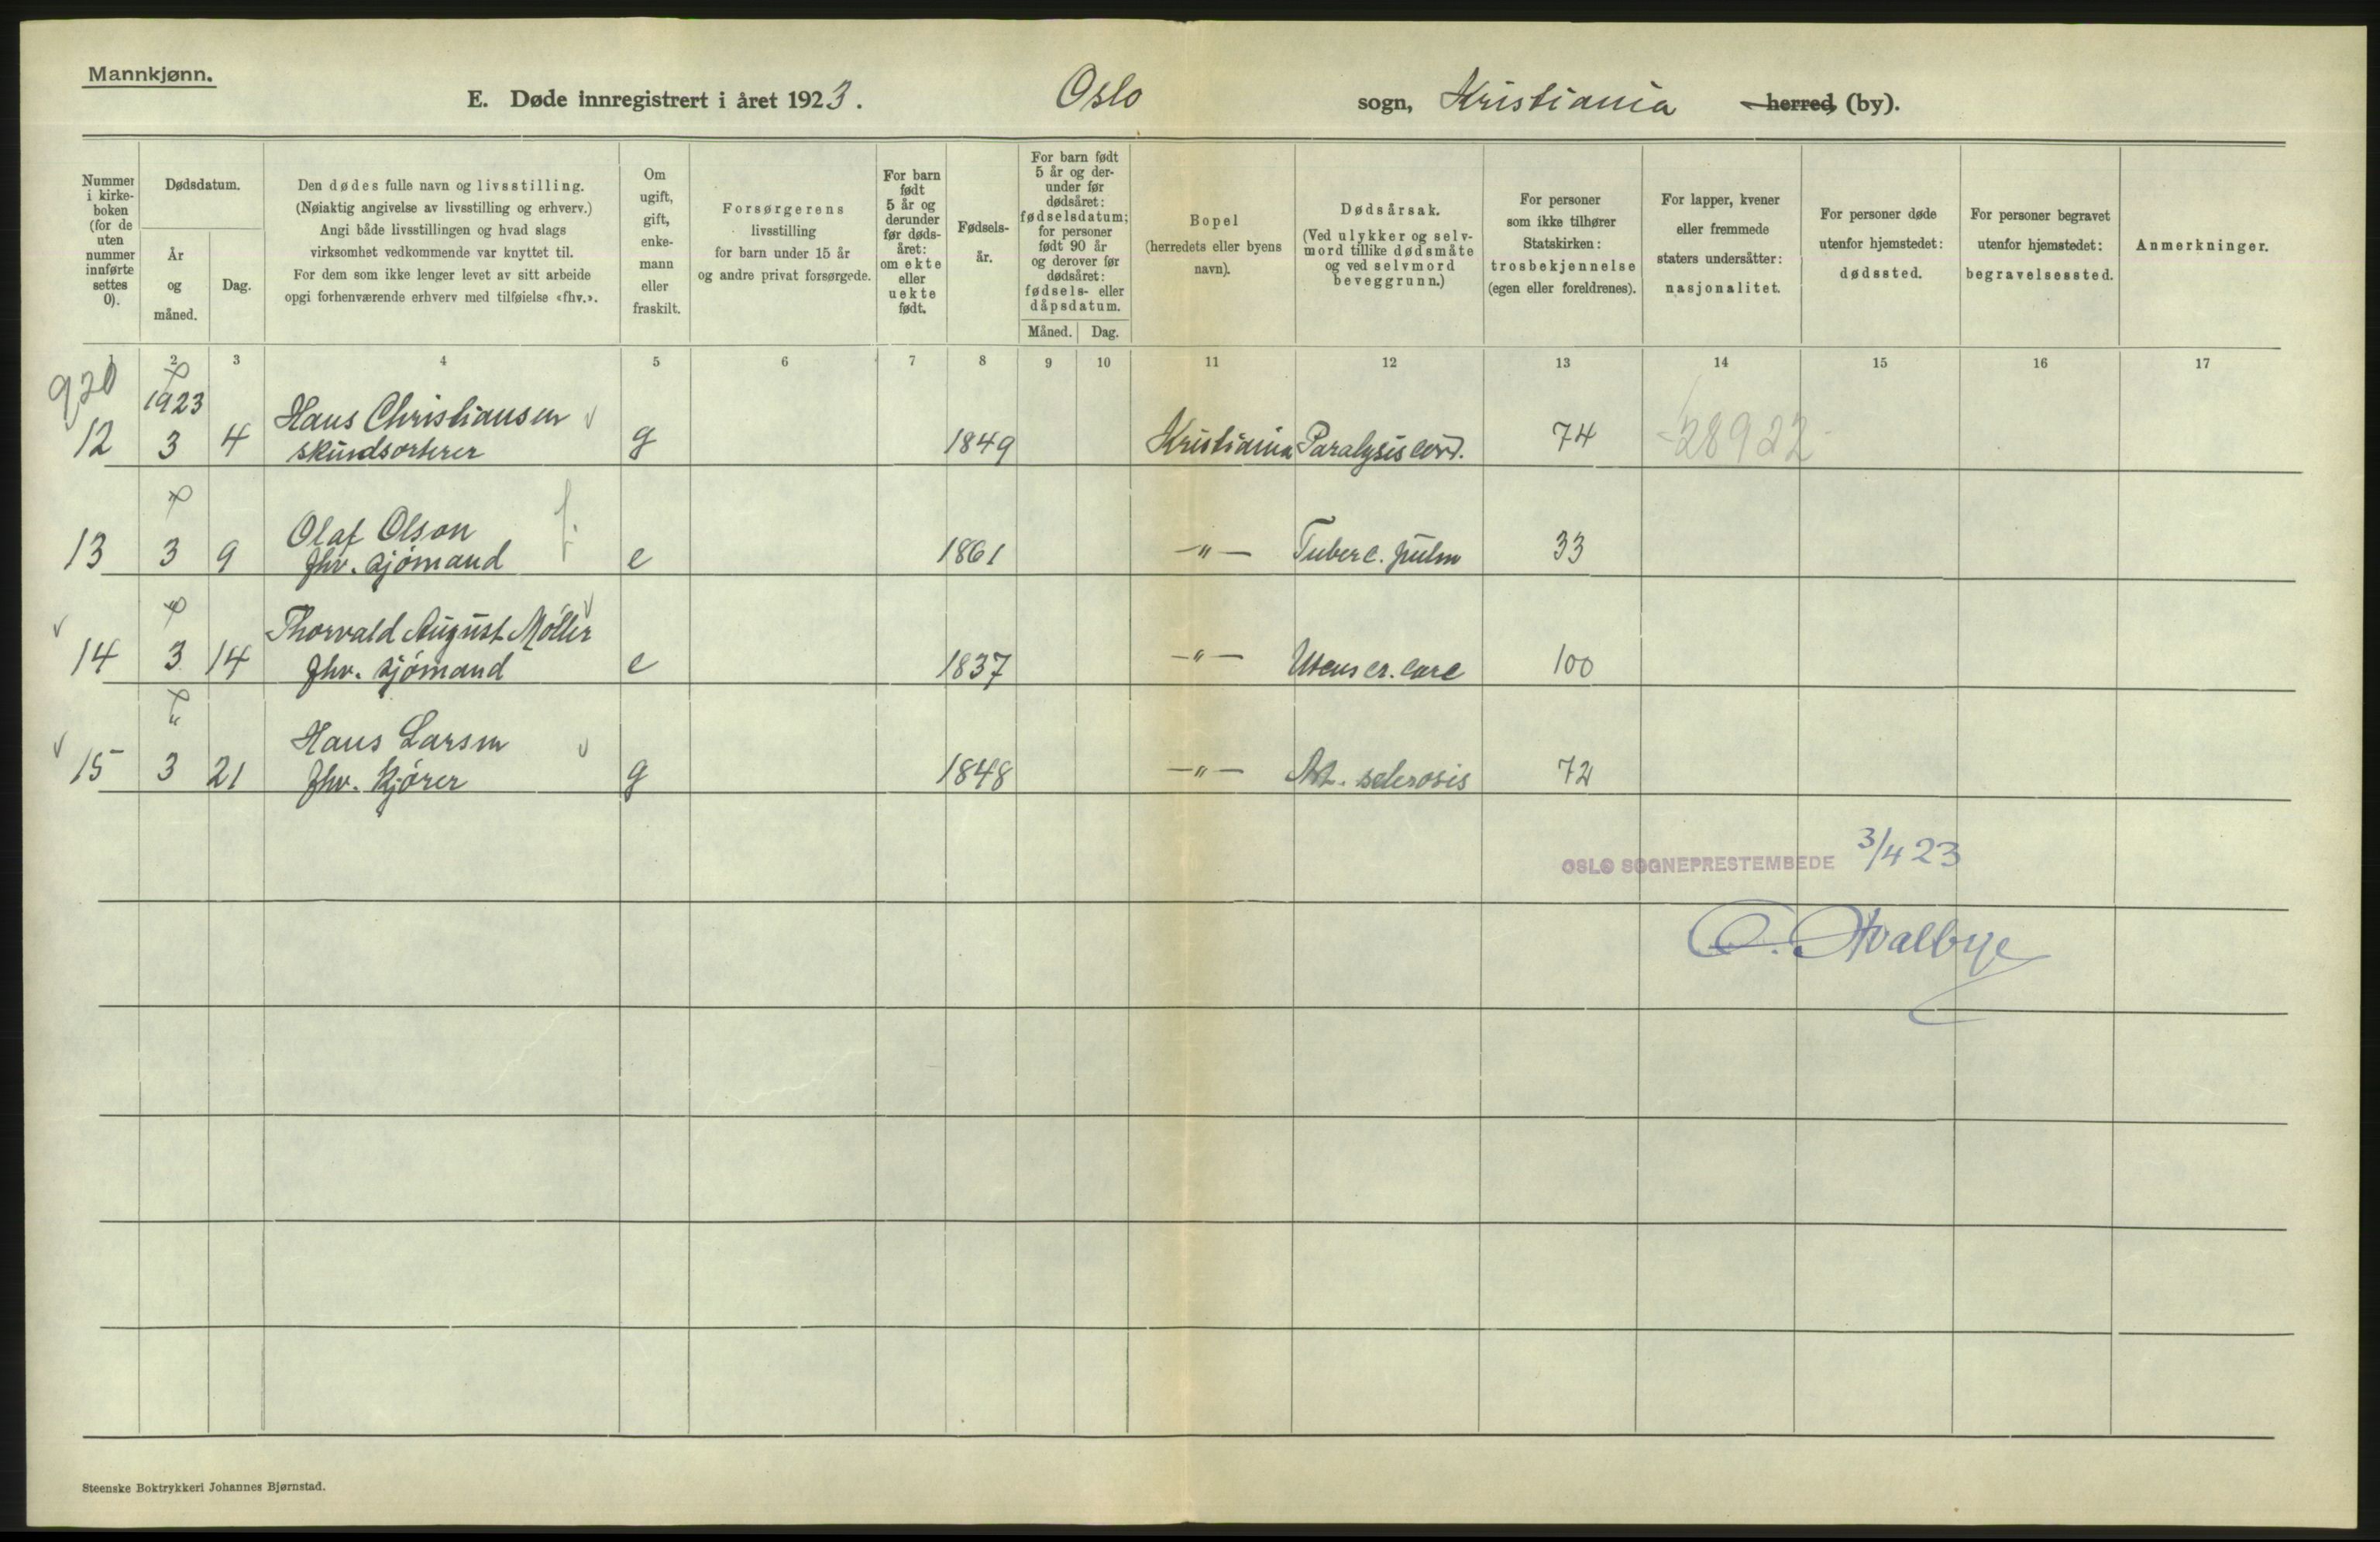 Mannkjønn.
E. Døde innregistrert i året 1923. Oslo sogn, Kristiania herred, (by).
Nummer i kirke-boken (for de uten nummer innførte settes 0).
Dødsdatum.
År og måned.
Dag.
Den dødes fulle navn og livsstilling.
(Nøiaktig angivelse av livsstilling og erhverv.)
Angi både livsstillingen og hvad slags
virksomhet vedkommende var knyttet til.
For dem som ikke lenger levet av sitt arbeide
opgi forhenværende erhverv med tilføielse «fhv.».
Om ugift, gift, enke-mann eller fraskilt.
Forsørgerens
livsstilling
for barn under 15 år
og andre privat forsørgede.
For barn født 5 år og derunder før døds-året: om ekte eller uekte født.
Fødsels-år.
For barn født 5 år og der-under før dødsåret: fødselsdatum; for personer født 90 år og derover før dødsåret: fødsels- eller dåpsdatum.
Måned. Dag.
Bopel
(herredets eller byens
navn).
Dødsårsak.
(Ved ulykker og selv-
mord tillike dødsmåte
og ved selvmord
beveggrunn.)
For personer
som ikke tilhører
Statskirken:
trosbekjennelse
(egen eller foreldrenes).
For lapper, kvener
eller fremmede
staters undersåtter:
nasjonalitet.
For personer døde
utenfor hjemstedet:
dødssted.
For personer begravet
utenfor hjemstedet:
begravelsessted.
Anmerkninger.
1 2 3 4 5 6 7 8 9 10 11 12 13 14 15 16 17
920
1923
12 3 4 Hans Christiansen
skindsorterer g 1849 Kristiania Paralysis cord. 74 28922
13 3 9 Olaf Olson
fhv. sjømand e 1861 —"— Tuberc. pulm 33
14 3 14 Thorvald August Møller
fhv. sjømand e 1837 —"— 100
15 3 21 Hans Larsen
fhv. kjører g 1848 —"— Art. sclerosis 72
OSLO SOGNEPRESTEMBEDE 3/4 23
Steenske Boktrykkeri Johannes Bjørnstad.